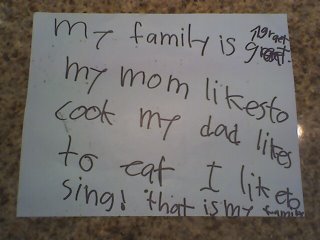 my family is great
great.
my mom likesto
cook my dad likes
to eat I liketo
sing! that is my family